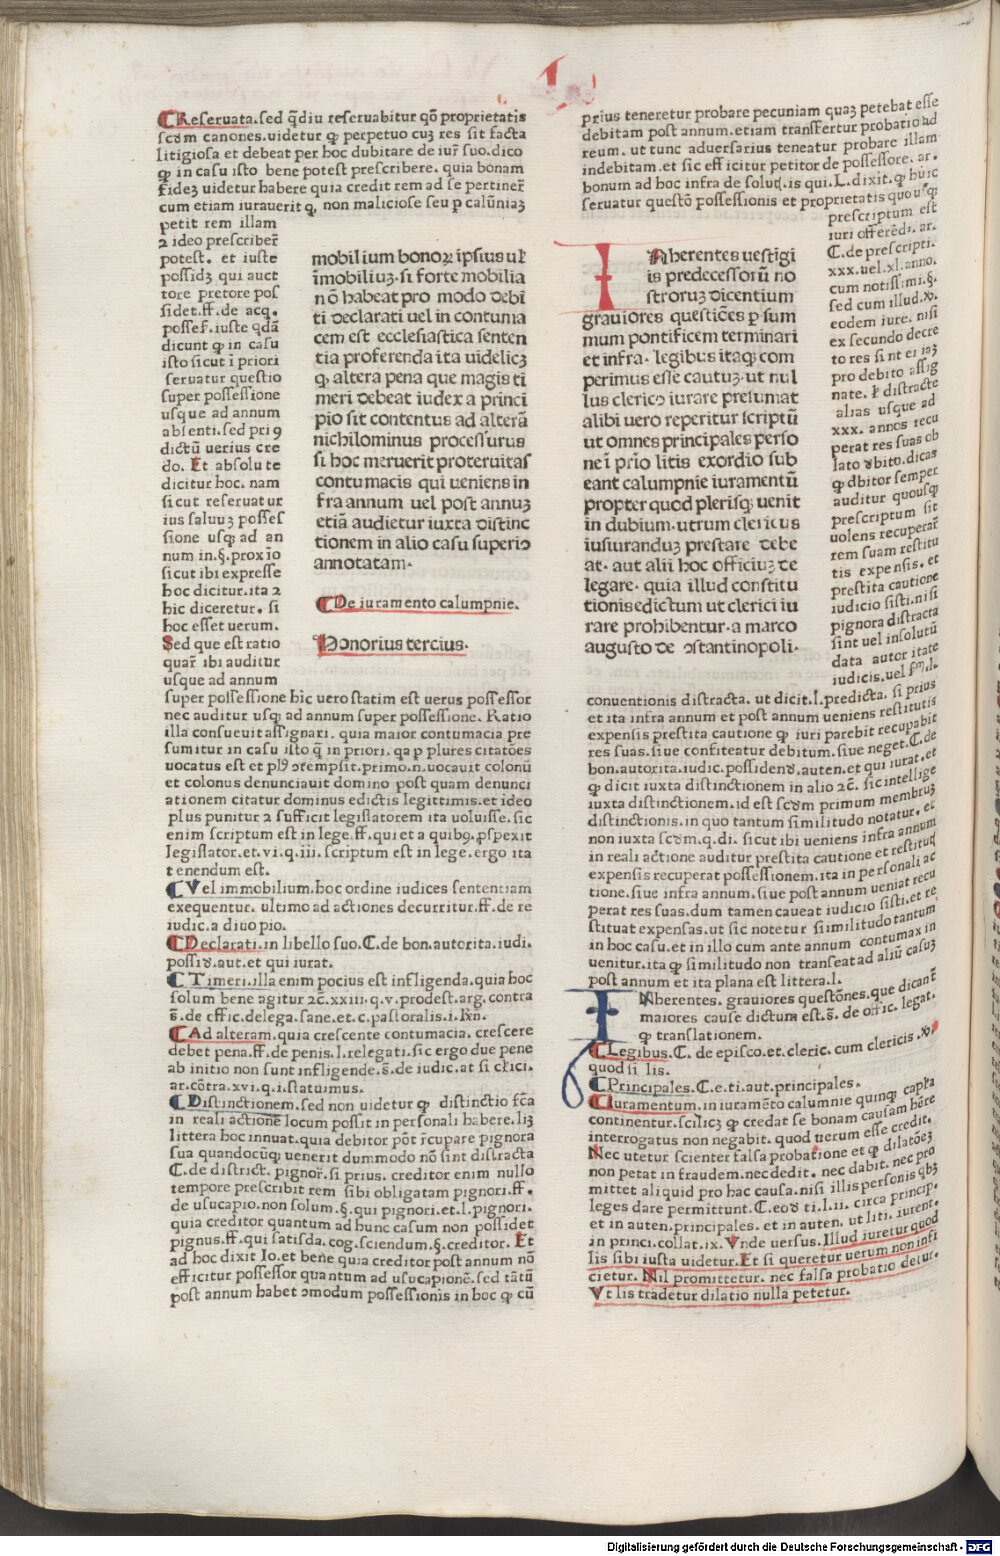 L
¶Reseruata.sed q̄diu reseruabitur qō proprietatis
scḋm canones.uidetur ꝙ perpetuo cuʒ res sit facta
litigiosa et debeat per hoc dubitare de iur̄ suo.dico
ꝙ in casu isto bene potest prescribere. quia bonam
fideʒ uidetur habere quia credit rem ad se pertiner̄
cum etiam iurauerit ꝙ non maliciose seu p calūniaʒ
petit rem illam
⁊ ideo prescriber̄
potest. et iuste
possidʒ qui auct
tore pretore pos
sidet.ff.de acq.
possef.iuste qdā
dicunt ꝙ in casu
isto sicut ī priori
seruatur questio
super possessione
usque ad annum
absenti.sed pri9
dictū uerius cre
do. Et absolute
dicitur hoc. nam
sicut reseruatur
ius saluuʒ posses
sione usqꝫ ad an
num in.§.proxīo
sicut ibi expresse
hoc dicitur.ita ⁊
hic diceretur. si
hoc esset uerum.
Sed que est ratio
quar̄ ibi auditur
usque ad annum
super possessione hic uero statim est uerus possessor
nec auditur usqꝫ ad annum super possessione. Ratio
illa consueuit assignari. quia maior contumacia pre
sumitur in casu isto q̄ in priori. qa p plures citatōes
uocatus est et pl9 ɔtempsit.primo.n.uocauit colonū
et colonus denunciauit domino post quam denunci
ationem citatur dominus edictis legittimis.et ideo
plus punitur ⁊ sufficit legislatorem ita uoluisse.sic
enim scriptum est in lege.ff.qui et a quib9.pspexit
legislator.et.vi.q.iii.scriptum est in lege.ergo ita
tenendum est.
¶Vel immobilium.hoc ordine iudices sententiam
exequentur. ultimo ad actiones decurritur.ff.de re
iudic.a diuo pio.
¶Declarati.in libello suo.C.de bon.autorita.iudi.
possiḋ.aut.et qui iurat.
¶Timeri.illa enim pocius est infligenda.quia hoc
solum bene agitur ⁊c̄.xxiii.q.v.prodest.arg.contra
s̄.de offic.delega.sane.et.c.pastoralis.i.Rn̄.
¶Ad alteram.quia crescente contumacia. crescere
debet pena.ff.de penis.l.relegati.sic ergo due pene
ab initio non sunt infligende.s̄.de iudic.at si cl̄ici.
ar.cōtra.xvi.q.i.statuimus.
¶Distinctionem.sed non uidetur ꝙ distinctio fc̄a
in reali actione locum possit in personali habere.liʒ
littera hoc innuat.quia debitor pōt r̄cupare pignora
sua quandocūqꝫ uenerit dummodo nō sint distracta
C.de district. pignor̄.si prius. creditor enim nullo
tempore prescribit rem sibi obligatam pignori.ff.
de usucapio.non solum.§.qui pignori.et.l.pignori.
quia creditor quantum ad hunc casum non possidet
pignus.ff.qui satisda.cog.sciendum.§.creditor. Et
ad hoc dixit Io.et bene quia creditor post annum nō
efficitur possessor quantum ad usucapionē.sed tātū
post annum habet ɔmodum possessionis in hoc ꝙ cū
mobilium bonoꝝ ipsius ul̄
īmobiliuʒ.si forte mobilia
nō habeat pro modo debi
ti declarati uel in contuma
cem est ecclesiastica senten
tia proferenda ita uidelicʒ
ꝙ altera pena que magis ti
meri debeat iudex a princi
pio sit contentus ad alterā
nichilominus processurus
si hoc meruerit proteruitas
contumacis qui ueniens in
fra annum uel post annuʒ
etiā audietur iuxta distinc
tionem in alio casu superiɔ
annotatam.
¶De iuramento calumpnie.
Honorius tercius.
prius teneretur probare pecuniam quaʒ petebat esse
debitam post annum.etiam transfertur probatio ad
reum. ut tunc aduersarius teneatur probare illam
indebitam.et sic efficitur petitor de possessore. ar.
bonum ad hoc infra de soluꞇ.is qui.L.dixit.ꝙ huic
seruatur questō possessionis et proprietatis quousqꝫ
prescriptum est
iuri offerēdi. ar.
C.de prescripti.
xxx.uel.xl.anno.
cum notissimi.§.
sed cum illud.ꝟ.
eodem iure. nisi
ex secundo decre
to res sint ei iaʒ
pro debito assig
nate. ł distracte
alias usque ad
xxx. annos recu
perat res suas ob
lato ḋbito.dicas
ꝙ dbitor semper
auditur quousqꝫ
prescriptum sit
uolens recuperar̄
rem suam restitu
tis expensis. et
prestita cautione
iudicio sisti.nisi
pignora distracta
sint uel insolutū
data autoritate
iudicis.uel fm̄.l.
Inherentes uestigi
is predecessorū no
stroruʒ dicentium
grauiores questiōes p sum
mum pontificem terminari
et infra. legibus itaqꝫ com
perimus esse cautuʒ.ut nul
lus clericɔ iurare presumat
alibi uero reperitur scriptū
ut omnes principales perso
ne ī prīo litis exordio sub
eant calumpnie iuramentū
propter quod plerisqꝫ uenit
in dubium.utrum clericus
iusiuranduʒ prestare debe
at. aut alii hoc officiuʒ de
legare. quia illud constitu
tionis edictum ut clerici iu
rare prohibentur.a marco
augusto de ɔstantinopoli.
conuentionis distracta. ut dicit.l.predicta. si prius
et ita infra annum et post annum ueniens restitutis
expensis prestita cautione ꝙ iuri parebit recupabit
res suas.siue confiteatur debitum.siue neget.C.de
bon.autorita.iudic.possidenḋ.auten.et qui iurat.et
ꝙ dicit iuxta distinctionem in alio ⁊c̄. sic intellige
iuxta distinctionem.id est scḋm primum membruʒ
distinctionis.in quo tantum similitudo notatur. et
non iuxta scḋm.q.di. sicut ibi ueniens infra annum
in reali actione auditur prestita cautione et restitutꝭ
expensis recuperat possessionem.ita in personali ac
tione.siue infra annum.siue post annum ueniat recu
perat res suas.dum tamen caueat iudicio sisti.et re
stituat expensas.ut sic notetur similitudo tantum
in hoc casu.et in illo cum ante annum contumax in
uenitur.ita ꝙ similitudo non transeat ad aliū casuʒ
post annum et ita plana est littera.l.
Inherentes. grauiores questōnes.que dicant̄
maiores cause dictum est.s̄. de offic. legat.
ꝙ translationem.
¶Legibus.C. de episco.et.cleric. cum clericis.ꝟ.
quod si lis.
¶Principales.C.e.ti.aut.principales.
¶Iuramentum.in iuramēto calumnie quinqꝫ capl̄a
continentur.scilicʒ ꝙ credat se bonam causam hēre
interrogatus non negabit. quod uerum esse credit.
Nec utetur scienter falsa probatione et ꝙ dilatōeʒ
non petat in fraudem.nec dedit. nec dabit. nec pro
mittet aliquid pro hac causa.nisi illis personis qbʒ
leges dare permittunt.C.eoḋ ti.l.ii. circa princip.
et in auten.principales. et in auten. ut liti. iurent.
in princi.collat.ix. Vnde uersus.Illud iuretur quod
lis sibi iusta uidetur.Et si queretur uerum non infi
cietur. Nil promittetur. nec falsa probatio detur.
Vt lis tradetur dilatio nulla petetur.
Digitalisierung gefördert durch die Deutsche Forschungsgemeinschaft - DFG